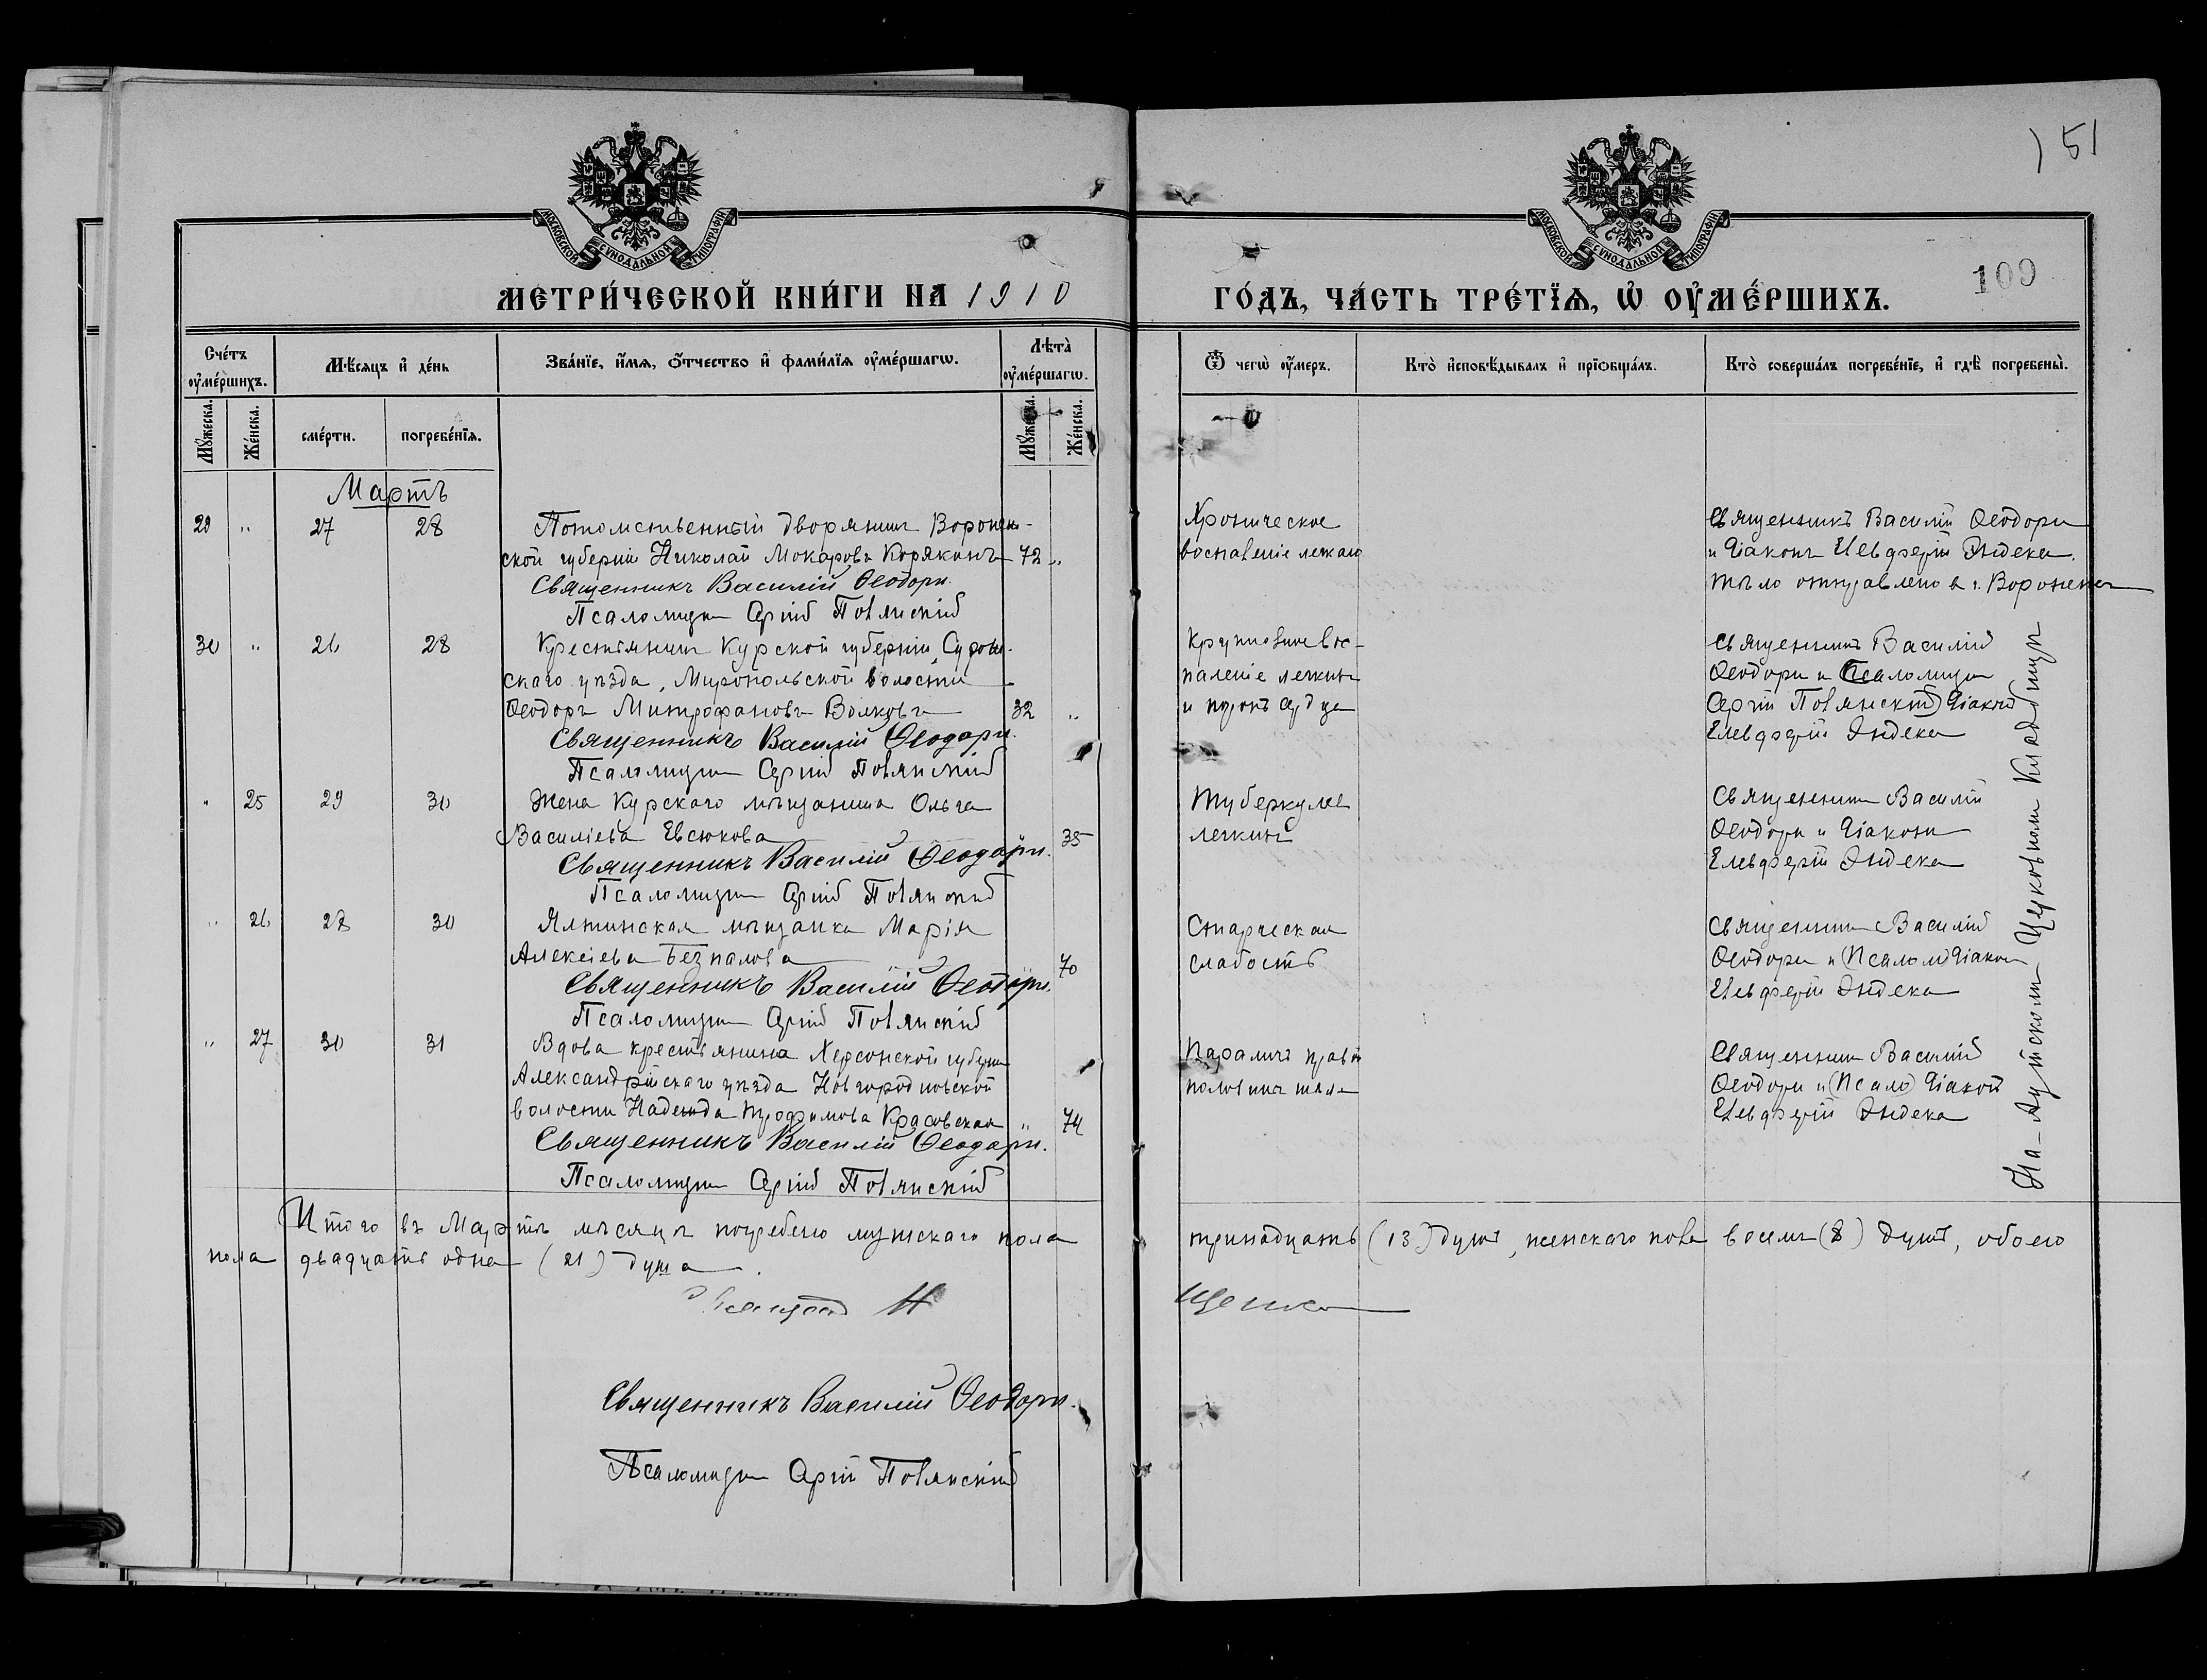 151
МОСКОВСКОЙ СѴНОДАЛЬНОЙ ТИПОГРАФІИ
МОСКОВСКОЙ СѴНОДАЛЬНОЙ ТИПОГРАФІИ
109
МЕТРИ́ЧЕСКОЙ КНИ́ГИ НА 1910
ГО́ДЪ, ЧА́СТЬ ТРЕ́ТЇѦ, Ѡ҆ ОУ҆МЕ́РШИХЪ.
Сче́тъ оу҆ме́ршихъ.
Мѣ́сѧцъ и҆ де́нь
Зва́нїе, и҆́мѧ, ѻ҆́тчество и҆ фами́лїѧ оу҆ме́ршагѡ.
Лѣ́та оу҆ме́ршагѡ.
Ѿ чегѡ̀ оу҆́меръ.
Кто̀ и҆сповѣ́дывалъ и҆ прїѡбща́лъ.
Кто̀ соверша́лъ погребе́нїе, и҆ гдѣ̀ погребены̀.
Мꙋ́жеска.
Же́нска.
сме́рти.
погребе́нїѧ.
Мꙋ́жеска.
Же́нска.
Мартъ
29 „ 27 28 Потомственный дворянинъ Воронеж-
ской губерніи Николай Макаровъ Корякинъ 72 „
Священникъ Василій Ѳеодори.
Псаломщикъ Сергій Полянскій
Хроническое
воспаленіе легкаго
Священникъ Василій Ѳеодори
и діаконъ Елевферій Эндека.
Тѣло отправлено въ г. Воронежъ
30 „ 26 28 Крестьянинъ Курской губерніи, Суджан-
скаго уѣзда, Миропольской волости
Ѳеодоръ Митрофановъ Волковъ 32 „
Священникъ Василій Ѳеодори.
Псаломщикъ Сергій Полянскій
Крупозное вос-
паленіе легкихъ
и порокъ сердца
Священникъ Василій
Ѳеодори и Псаломщикъ
Сергій Полянскій) діаконъ
Елевферій Эндека
„ 25 29 30 Жена Курскаго мѣщанина Ольга
Василіева Евсюкова 35
Священникъ Василій Ѳеодори.
Псаломщикъ Сергій Полянскій
Туберкулез
легкихъ
Священникъ Василій
Ѳеодори и діаконъ
Елевферій Эндека
„ 26 28 30 Ялтинская мѣщанка Марія
Алексіева Безпалова 70
Священникъ Василій Ѳеодори.
Псаломщикъ Сергій Полянскій
Старческая
слабость
Священникъ Василій
Ѳеодори и (Псалом) діаконъ
Елевферій Эндека
„ 27 30 31 Вдова крестьянина Херсонской губерніи
Александрійскаго уѣзда Новгородковской
волости Надежда Трофимова Красовская „ 74
Священникъ Василій Ѳеодори.
Псаломщикъ Сергій Полянскій
Параличъ правой
половины тѣла
Священникъ Василій
Ѳеодори и (Псало) діаконъ
Елевферій Эндека
На Аутскомъ Церковномъ Кладбищѣ
Итого въ Мартѣ мѣсяцѣ погребено мужскаго пола тринадцать (13) душъ, женскаго пола восемь (8) душъ, обоего
пола двадцать одна (21) душа.
Священникъ Василій Ѳеодори.
Псаломщикъ Сергій Полянскій